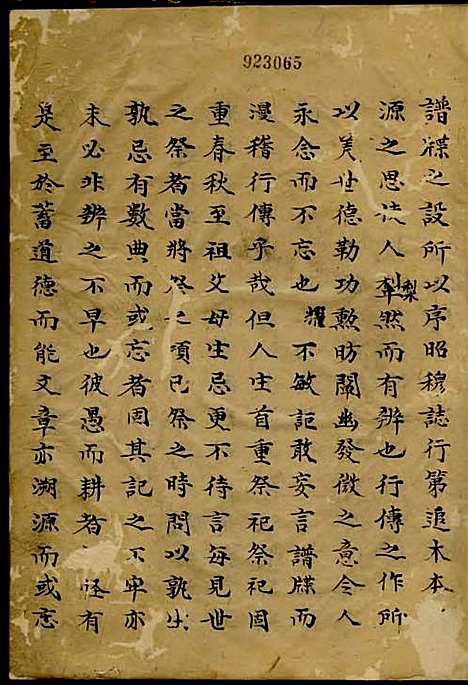 923065
譜牒之設所以序昭穆誌行第追木本
源之思使人犂然而有辨也行傳之作所
梨
以美世德勒功勲昉闡幽發微之意令人
永念而不忘也 耀 不敏詎敢妄言譜牒而
漫稽行傳乎哉但人生首重祭祀祭祀固
重春秋至祖父母生忌更不待言每見世
之祭者當將祭之頃已祭之時問以孰生
孰忌有數典而或忘者固其記之不牢亦
未必非辨之不早也彼愚而耕者 怪有
是至於蓄道德而能文章亦溯源而或忘